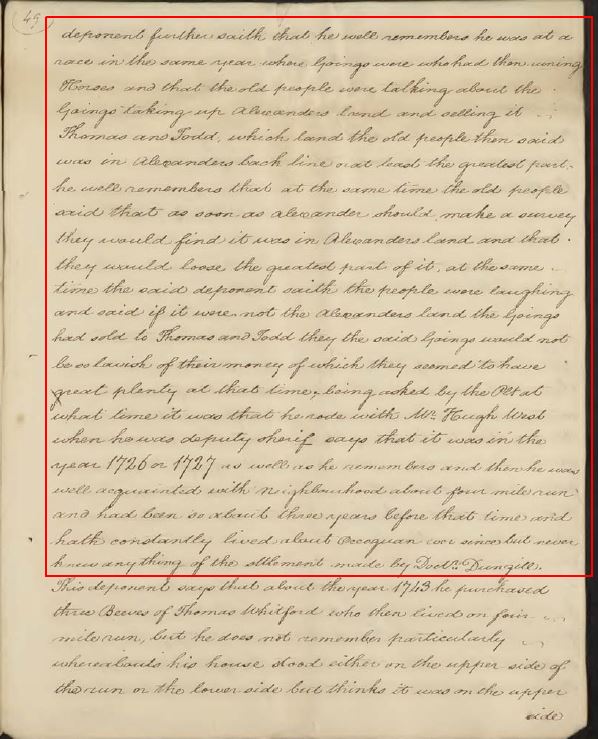 49
deponent further saith that he well remembers he was at a
race in the same year where Goings were who had then runing
Horses and that the old people were talking about the
Goings taking up Alexanders land and selling it
Thomas and Todd, which land the old people then said
was in Alexanders back line or at least the greatest part,
he well remembers that at the same time the old people
said that as soon as alexander should make a survey
they would find it was in Alexanders land and that
they would loose the greatest part of it, at the same
time the said deponent saith the people were laughing
and said if it were not the Alexanders land the Goings
had sold to Thomas and Todd they the said Goings would not
be so lavish of their money of which they seemed to have
great plenty at that time, being asked by the Plt at
what time it was that he rode with Mr. Hugh West
when he was deputy sherif says that it was in the
year 1726 or 1727 as well as he remembers and then he was
well acquainted with Neighbourhood about four mile run
and had been so about three years before that time and
hath constantly lived about Occoquan ever since but never
knew any thing of the settlement made by Doctr. Dungill.
This deponent says that about the year 1743 he purchased
three Beeves of Thomas Whitford who then lived on four
mile run, but he does not remember particularly
whereabouts his house stood either on the upper side of
the run or the lower side but thinks it was on the upper
side